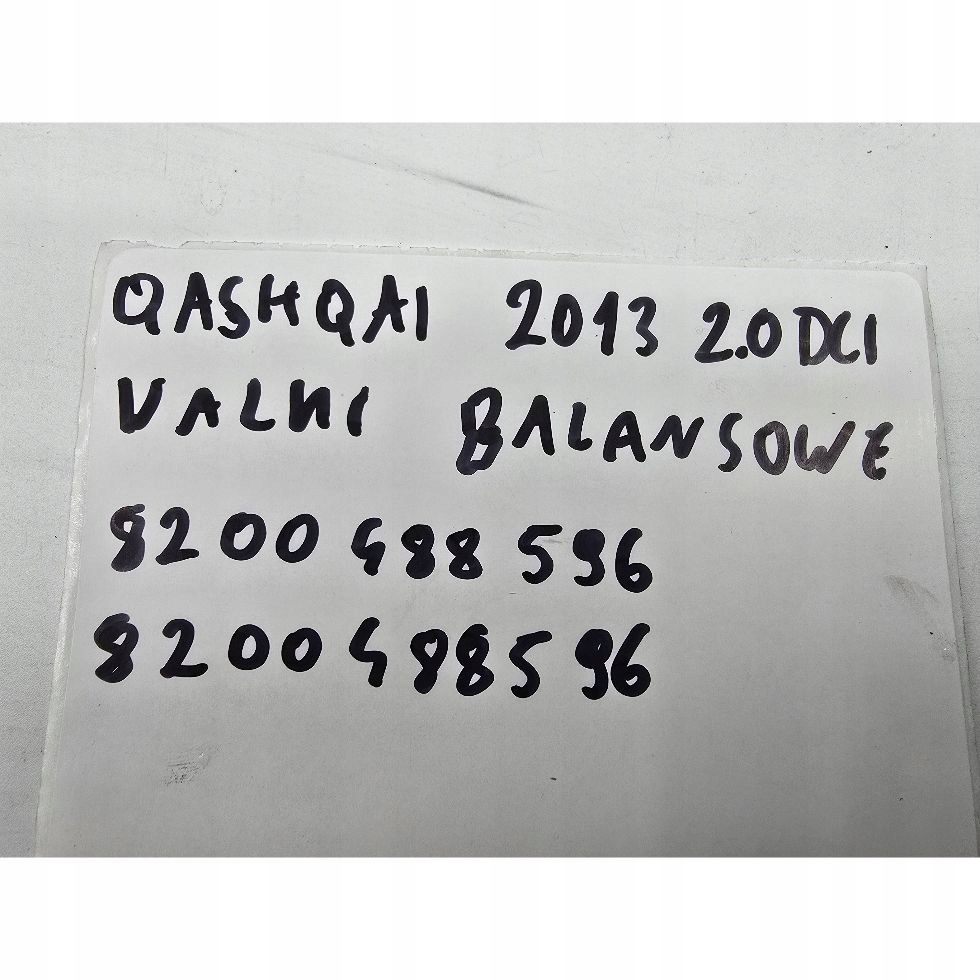 QASHQAI 2013 2.0 DCI
VALKI BALANSOWE
8200 488 596
8200488596